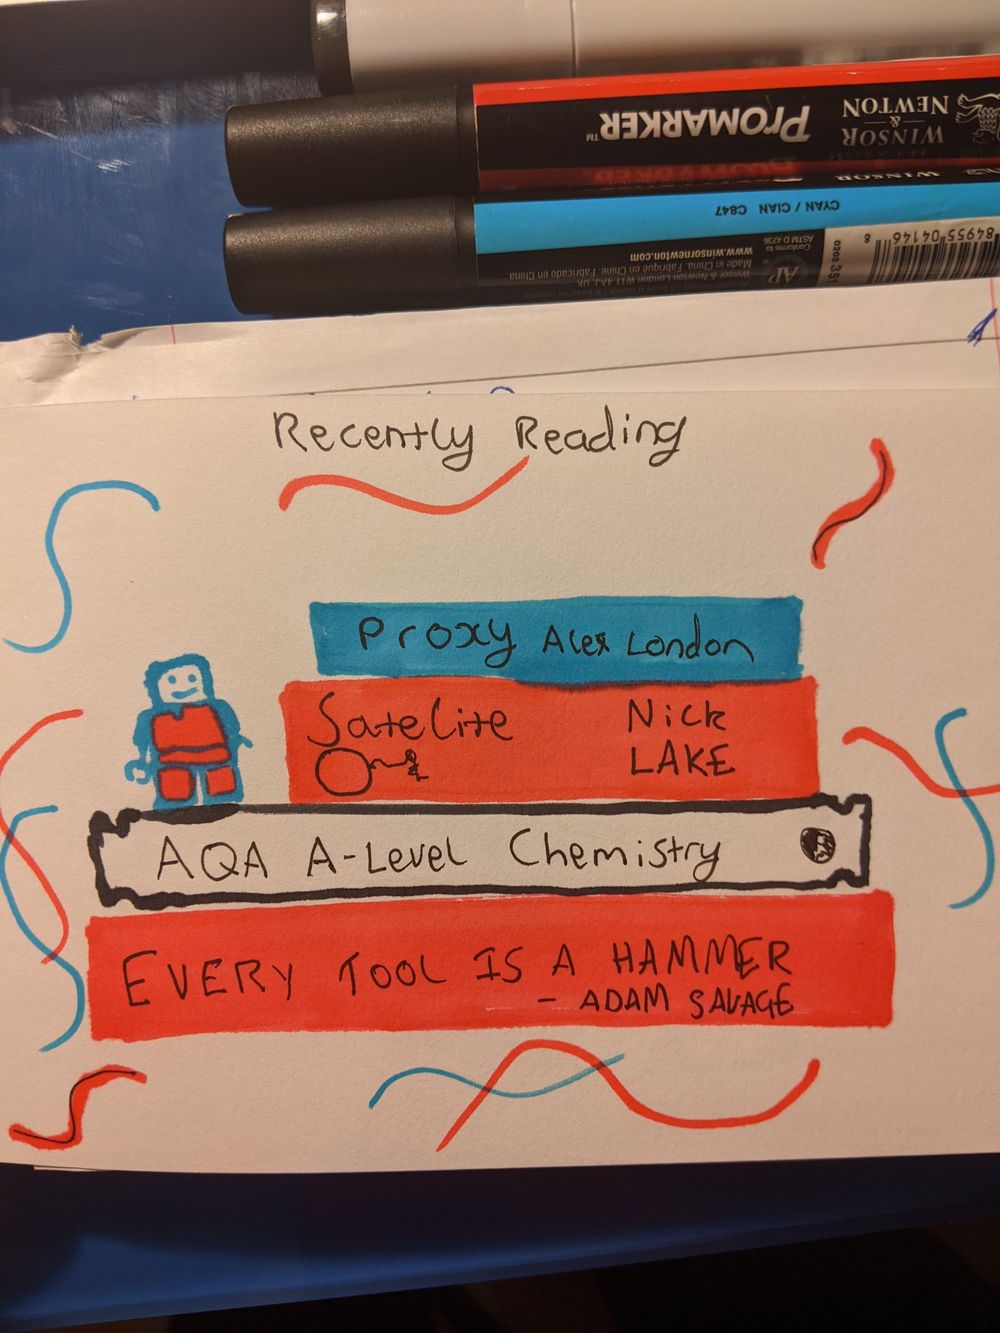 PROMARKER™
WINSOR
&
NEWTON
WINSOR
CYAN / CIAN C847
www.winsornewton.com
Made in China. Fabriqué en Chine. Fabricado en China.
Winsor & Newton London W11 4AJ, UK.
Conforms to
ASTM D 4236
AP
84955 04146 8
0203 351
Recently Reading
Proxy Alex London
Satelite Nick
LAKE
AQA A-Level Chemistry
EVERY TOOL IS A HAMMER
- ADAM SAVAGE